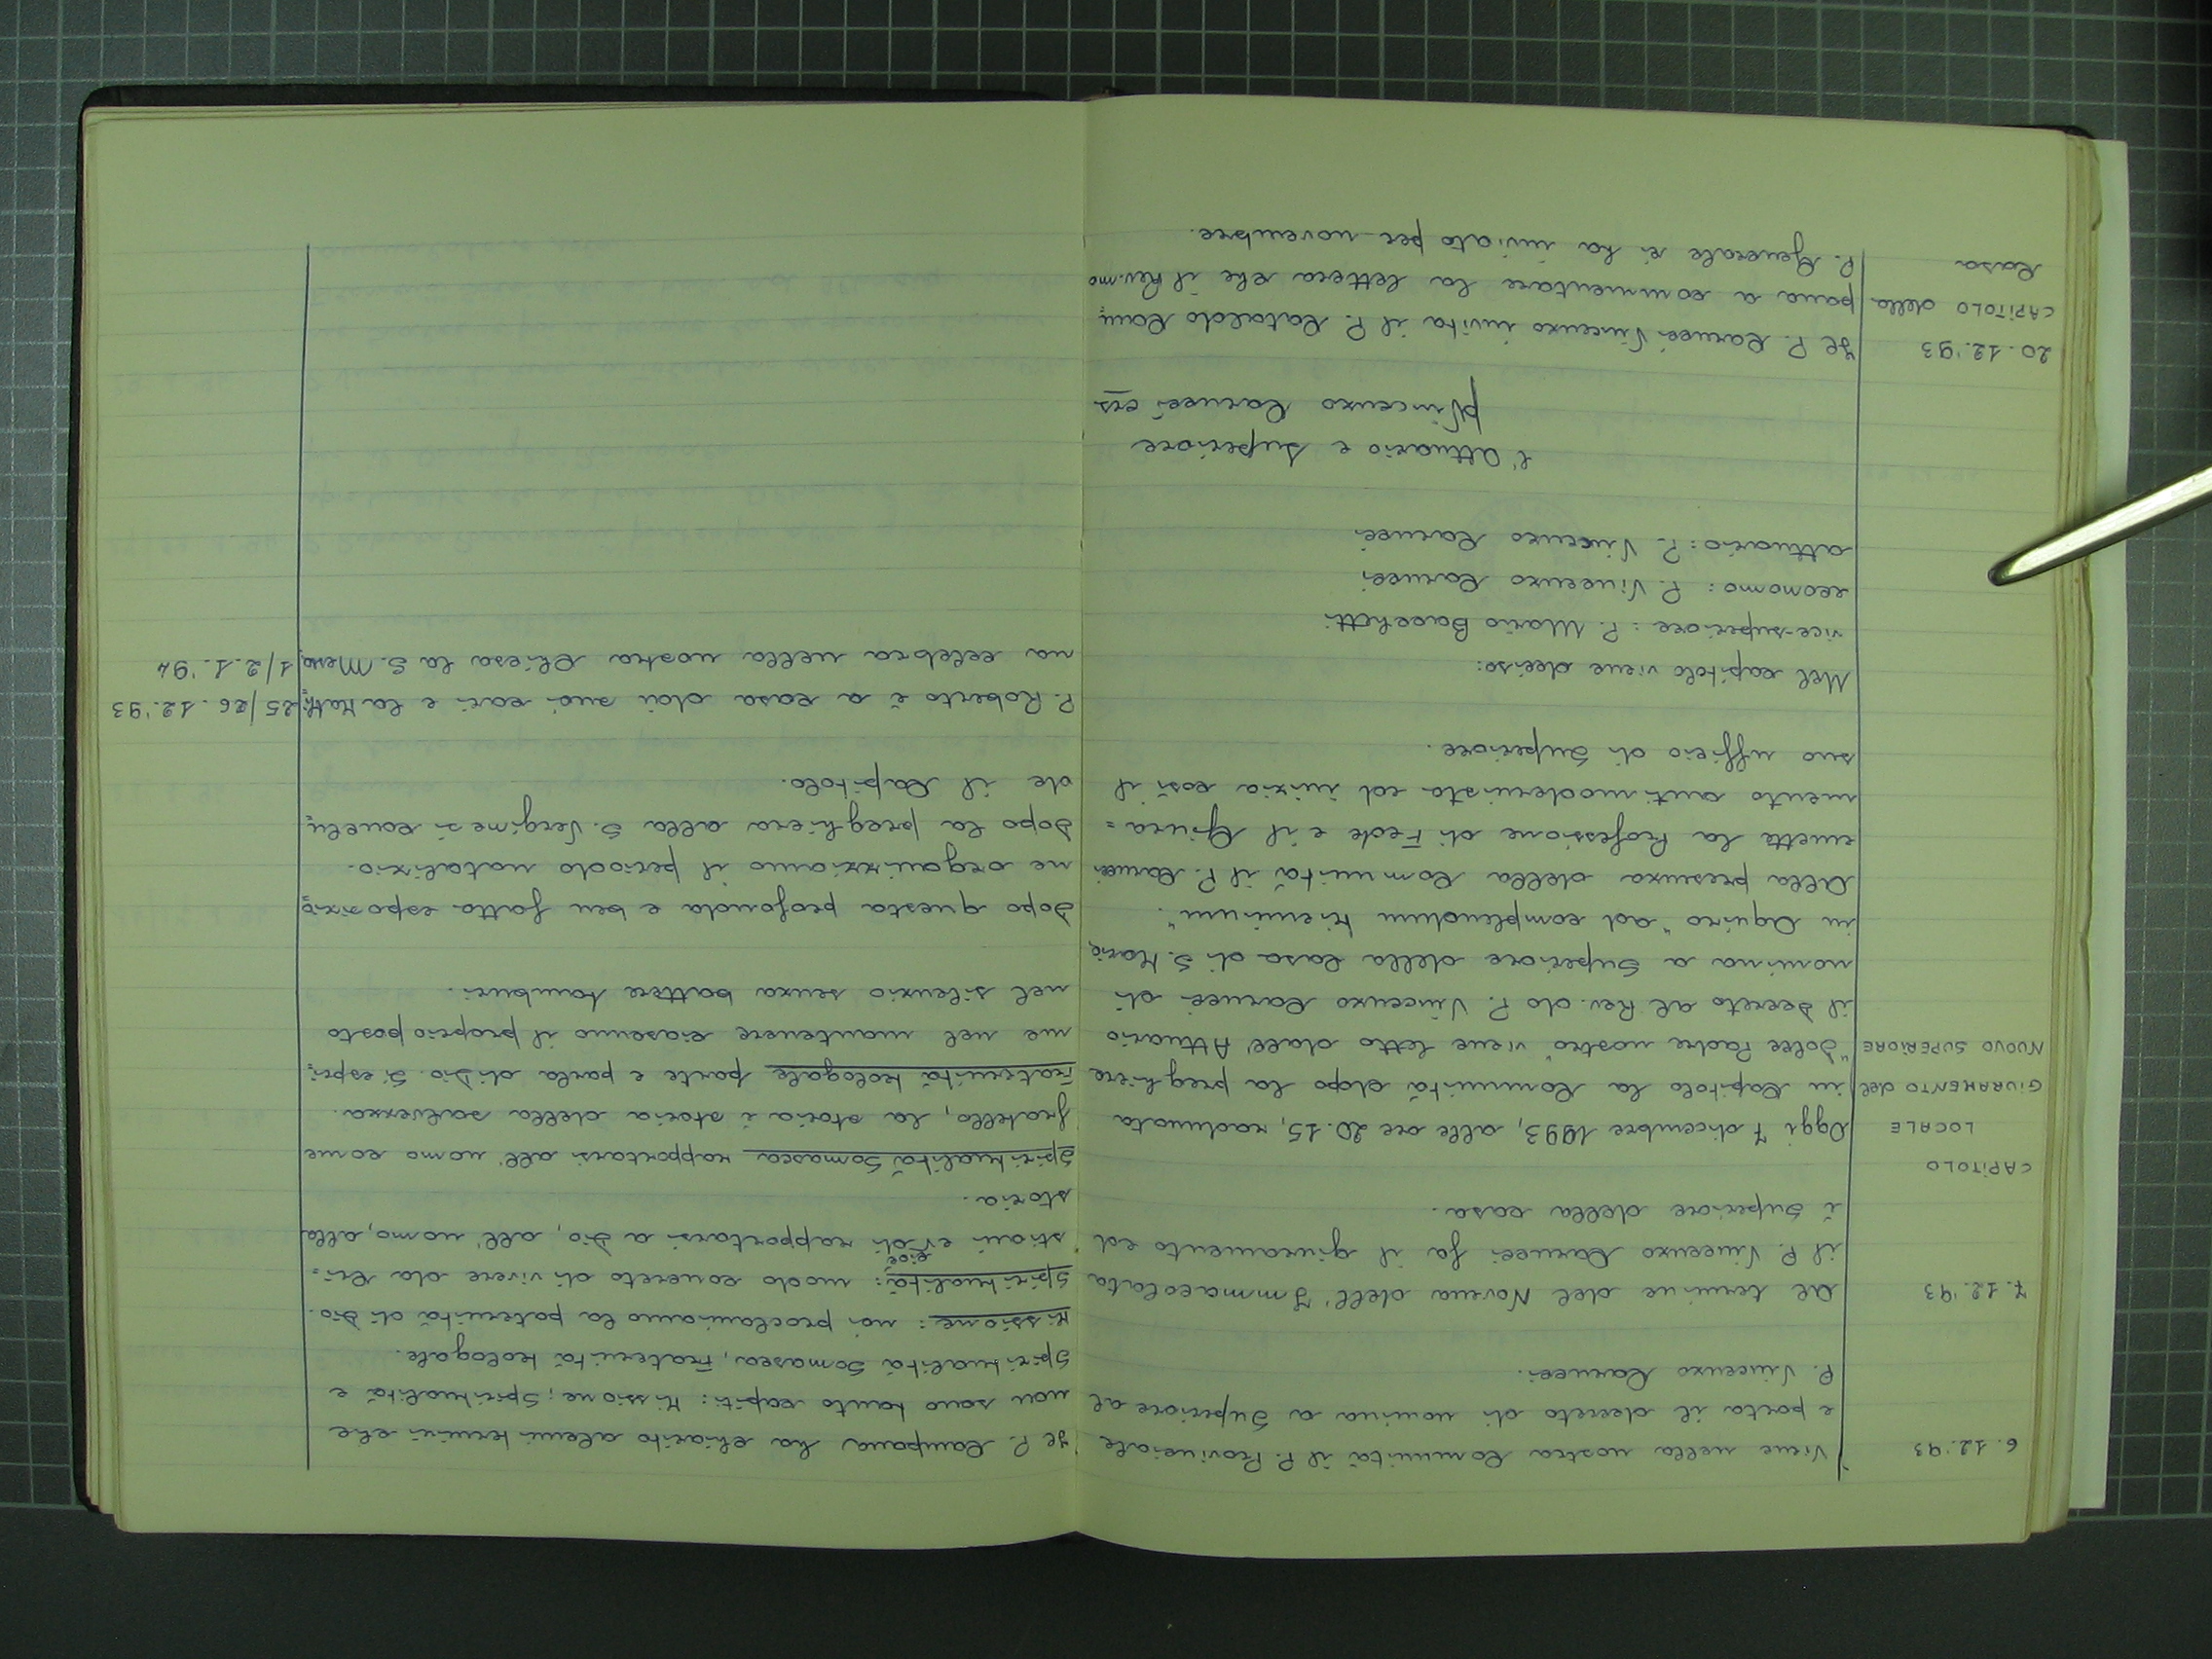 6.12.'93 Viene nella nostra Comunità il P. Provinciale
e porta il decreto di nomina a Superiore al
P. Vincenzo Carucci.
7.12.'93 Al termine del Novena dell'Immacolata
il P. Vincenzo Carucci fa il giuramento ed
è Superiore della casa.
CAPITOLO
LOCALE Oggi 7 dicembre 1993, alle ore 20.15, radunata
GIURAMENTO del in Capitolo la Comunità dopo la preghiera
NUOVO SUPERIORE "Dolce Padre nostro" viene letto dall'Attuario
il Decreto al Rev.do P. Vincenzo Carucci di
nomina a Superiore della Casa di S. Maria
in Aquiro "ad complendum triennium".
Alla presenza della Comunità il P. Carucci
emette la Professione di Fede e il Giura=
mento anti modernista ed inizia così il
suo ufficio di Superiore.
Nel capitolo viene deciso:
vice-superiore: P. Mario Bacchetti
economo: P. Vincenzo Carucci
attuario: P. Vincenzo Carucci
l'Attuario e Superiore
p Vincenzo Carucci crs
20.12.'93 Il P. Carucci Vincenzo invita il P. Cataldo Cam=
CAPITOLO della pana a commentare la lettera che il Rev.mo
Casa P. Generale ci ha inviato per novembre.
Il P. Campana ha chiarito alcuni termini che
non sono tanto capiti: Missione; Spiritualità e
Spiritualità Somasca, Fraternità teologale.
Missione: noi proclamiamo la paternità di Dio.
Spiritualità: modo concreto di vivere da Cri=
stiani cioè di rapportarsi a Dio, all'uomo, alla
storia.
Spiritualità Somasca rapportarsi all'uomo come
fratello, la storia è storia della salvezza.
Fraternità teologale parte e parla di Dio. Si espri=
me nel mantenere ciascuno il proprio posto
nel silenzio senza battere tamburi.
Dopo questa profonda e ben fatta esposizio=
ne organizziamo il periodo natalizio.
Dopo la preghiera alla S. Vergine si conclu=
de il Capitolo.
P. Roberto è a casa dai suoi cari e la Matti= 25/26.12.'93
na celebra nella nostra Chiesa la S. Messa 1/2.1.'94